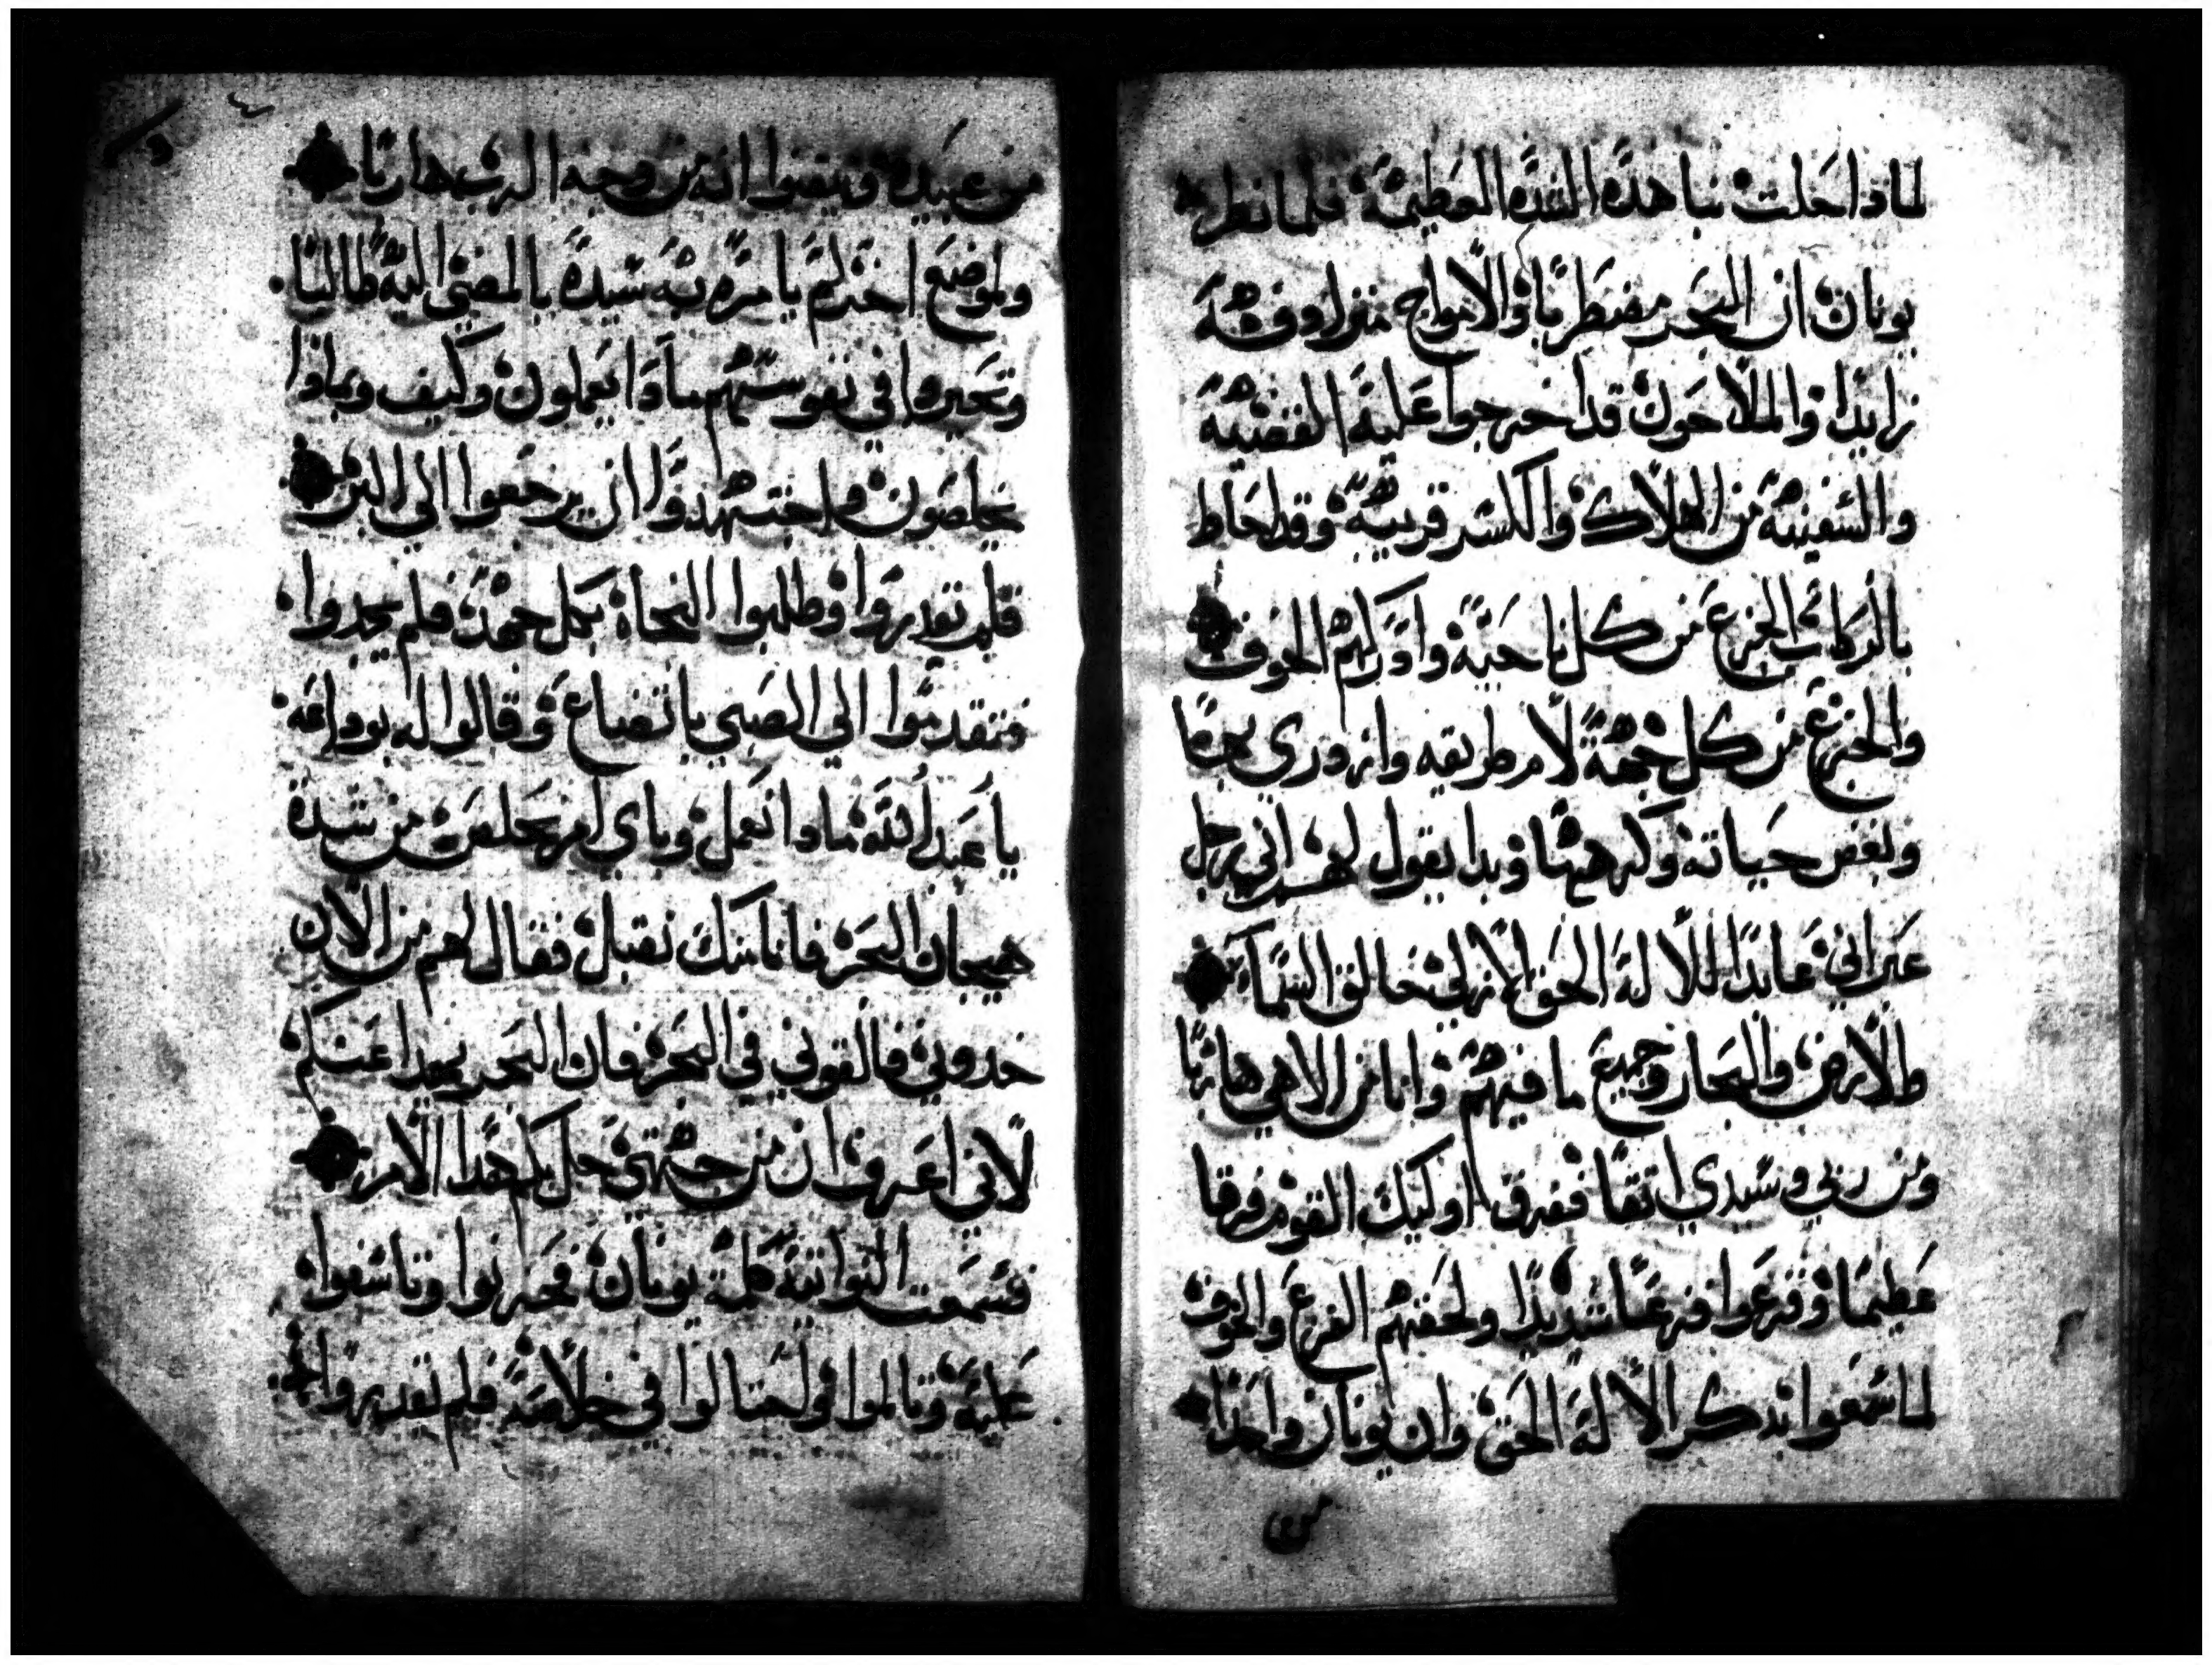 لماذا حلت بنا هذه الشده العظيمه فلما نظر
يونان ان البحر مضطربا والامواج متزاوفه
زايدا والملاحون قد اخرجوا عليه القضيه
والسفينه من الهلاك والكسر قريبه وقد احاط
بالركاب الجزع من كل ناحيه وادركهم الخوف
والجزع من كل جهة لام طريقه وازدري بهما
وبغض حياته وكرهها وبدا يقول لهم اني رجل
عبراني عابدا للاله الحق الازلي خالق السماء
والارض والبحار وجميع ما فيهم وانا من الاهي هاربا
ومن ربي وسيدي ابقا ففرق اوليك القوم فرقا
عظيما وفزعوا فزعا شديدا ولحقهم الفزع والخوف
لما سمعوا بذكر الاله الحق وان يونان واحدا
من عبيده وتيقنوا انه من وجه الرب هاربا
ولموضع اخر لم يامره به سيده بالمضي اليه طالبا
وتحيروا في نفوسهم ماذا يعملون وكيف وبماذا
يخلصون واجتهدوا ان يرجعوا الي البر
فلم يقدروا وطلبوا النجاه بكل جهد فلم يجدوا
فتقدموا الي الصبي باتضاع وقالوا له بوداعه
يا عبد الله ماذا نعمل وباي امر نخلص من شدة
هيجان البحر فاننا منك نقبل فقال لهم من الان
خدوني فالقوني في البحر فان البحر يهدا عنكم
لاني اعرف ان من جهتي حل بكم هذا الامر
فسمعت النواتيه كلمة يونان فحزنوا وتاسفوا
عليه وتالموا واحتالوا في خلاصه فلم يقدروا